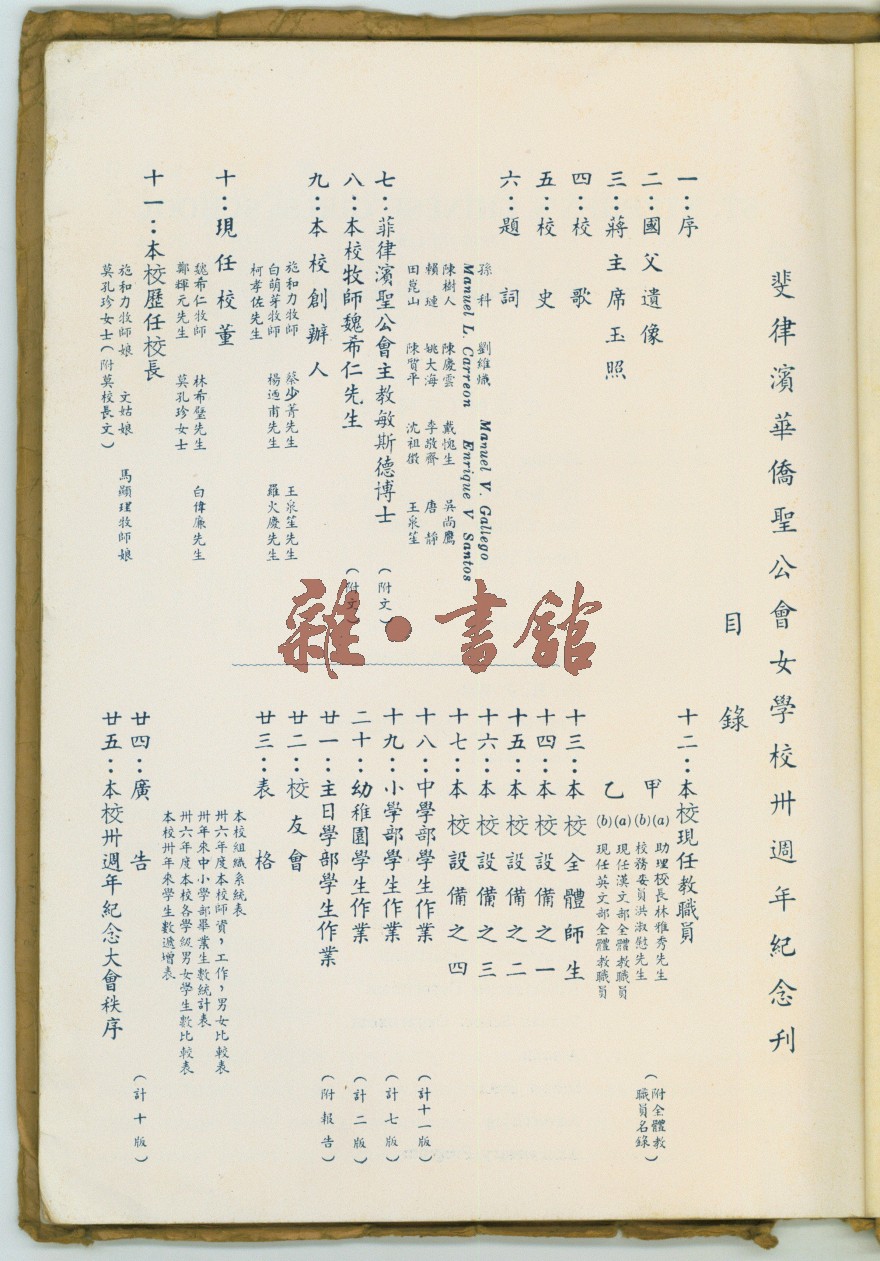 斐律濱華僑聖公會女學校卅週年紀念刋
目錄
一：序
二：國父遺像
三：蔣主席玉照
四：校歌
五：校史
六：題詞
孫科 劉維熾 Manuel V. Gallego
Manuel L. Carreon Enrique V Santos
陳樹人 陳慶雲 戴愧生 吳尚鷹
賴璉 姚大海 李敬齋 唐靜
田崑山 陳質平 沈祖徵 王泉笙
七：菲律濱聖公會主教敏斯德博士（附文）
八：本校牧師魏希仁先生（附文）
九：本校創辦人
施和力牧師 蔡少菁先生 王泉笙先生
白萌芽牧師 楊迺甫先生 羅火慶先生
柯孝佐先生
十：現任校董
魏希仁牧師 林希聖先生 白偉廉先生
鄭輝元先生 莫孔珍女士
十一：本校歷任校長
施和力牧師娘 文姑娘 馬顯理牧師娘
莫孔珍女士（附莫校長文）
十二：本校現任教職員
（附全體教職員名錄）
甲 (a) 助理校長林雅秀先生
(b) 校務委員洪淑慰先生
乙 (a) 現任漢文部全體教職員
(b) 現任英文部全體教職員
十三：本校全體師生
十四：本校設備之一
十五：本校設備之二
十六：本校設備之三
十七：本校設備之四
十八：中學部學生作業（計十一版）
十九：小學部學生作業（計七版）
二十：幼稚園學生作業（計二版）
廿一：主日學部學生作業（附報告）
廿二：校友會
廿三：表格
本校組織系統表
卅六年度本校師資，工作，男女比較表
卅年來中小學部畢業生數統計表
卅六年度本校各學級男女學生數比較表
本校卅年來學生數遞增表
廿四：廣告（計十版）
廿五：本校卅週年紀念大會秩序
雜·書館